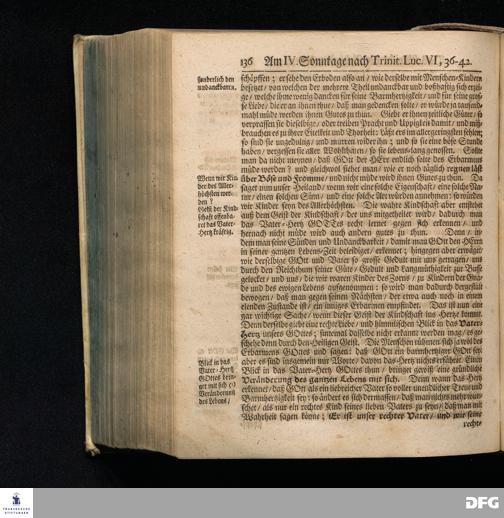 136 Am IV. Sonntage nach Trinit. Luc. VI, 36-42.
sonderlich den
undanckbaren.
schöpffen; er sehe den Erboden also an / wie derselbe mit Menschen-Kindern
besetzt / von welchen der mehrere Theil undanckbar und boßhafftig sich erzei-
ge / welche ihme wenig dancken für seine Barmhertzigkeit / und für seine gros-
se Liebe / die er an ihnen thue / daß man gedencken solte / er würde ja tausend-
mahl müde werden ihnen Gutes zu thun. Giebt er ihnen zeitliche Güter / so
verprassen sie dieselbige / oder treiben Pracht und Uppigkeit damit / und miß-
brauchen es zu ihrer Eitelkeit und Thorheit: Läßt ers im allergeringsten fehlen;
so sind sie ungedultig / und murren wider ihn; und so sie eine böse Stunde
haben / vergessen sie aller Wohlthaten / so sie lebenslang genossen. Solte
man da nicht meynen / daß GOtt der HErr endlich solte des Erbarmens
müde werden? und gleichwol siehet man / wie er noch täglich regnen läst
über Böse und Fromme / und nicht müde wird ihnen Gutes zu thun. Da
Wenn wir Kin-
der des Aller-
höchsten wer-
den?
saget nun unser Heiland / wenn wir eine solche Eigenschafft / eine solche Na-
tur / einen solchen Sinn / und eine solche Art würden annehmen: so würden
wir Kinder seyn des Allerhöchsten. Die wahre Kindschafft aber entstehet
Geist der Kind-
schafft offenba-
ret das Vater-
Hertz kräftig.
auß dem Geist der Kindschafft / der uns mitgetheilet wird / dadurch man
das Vater-Hertz GOTTes recht lernet gegen sich erkennen / und
hernach nicht müde wird auch andern gutes zu thun. Denn / in-
dem man seine Sünden und Undanckbarkeit / damit man GOtt den HErrn
in seiner gantzen Lebens-Zeit beleidiget / erkennet; hingegen aber erwäget
wie derselbige GOtt und Vater so grosse Gedult mit uns getragen / uns
durch den Reichthum seiner Güte / Gedult und Langmüthigkeit zur Busse
gelocket / und uns / die wir waren Kinder des Zorns / zu Kindern der Gna-
de und des ewigen Lebens aufgenommen: so wird man dadurch dergestalt
bewogen / daß man gegen seinen Nächsten / der etwa auch noch in einen
elenden Zustande ist / ein inniges Erbarmen empfindet. Das ist nun ein
gar wichtige Sache / wenn dieser Geist der Kindschafft ins Hertze kommt.
Denn derselbe giebt eine rechte Liebe / und himmlischen Blick in das Vater-
Hertz unsers GOttes; sintemal dasselbe nicht erkannt werden mag / es ge-
schehe denn durch den Heiligen Geist. Die Menschen rühmen sich ja wol des
Erbarmens GOttes und sagen: daß GOtt ein barmhertziger GOtt sey
aber es sind insgemein nur Worte / davon das Hertz nichts erfähret. Einen
Blick in das
Vater-Hertz
GOttes brin-
get mit sich (1)
Veränderung
des Lebens /
Blick in das Vater-Hertz GOttes thun / bringet gewiß eine gründliche
Veränderung des gantzen Lebens mit sich. Denn wann das Hertz
erkennet / daß GOtt als ein liebreicher Vater so voller unendlicher Treue und
Barmhertzigkeit sey; so ändert es sich dermassen / daß man nichts mehr wün-
schet / als nur ein rechtes Kind seines lieben Vaters zu seyn / daß man mit
Wahrheit sagen könne: Er ist unser rechter Vater / und wir seine
rechte
FRANCKESCHE
STIFTUNGEN
DFG